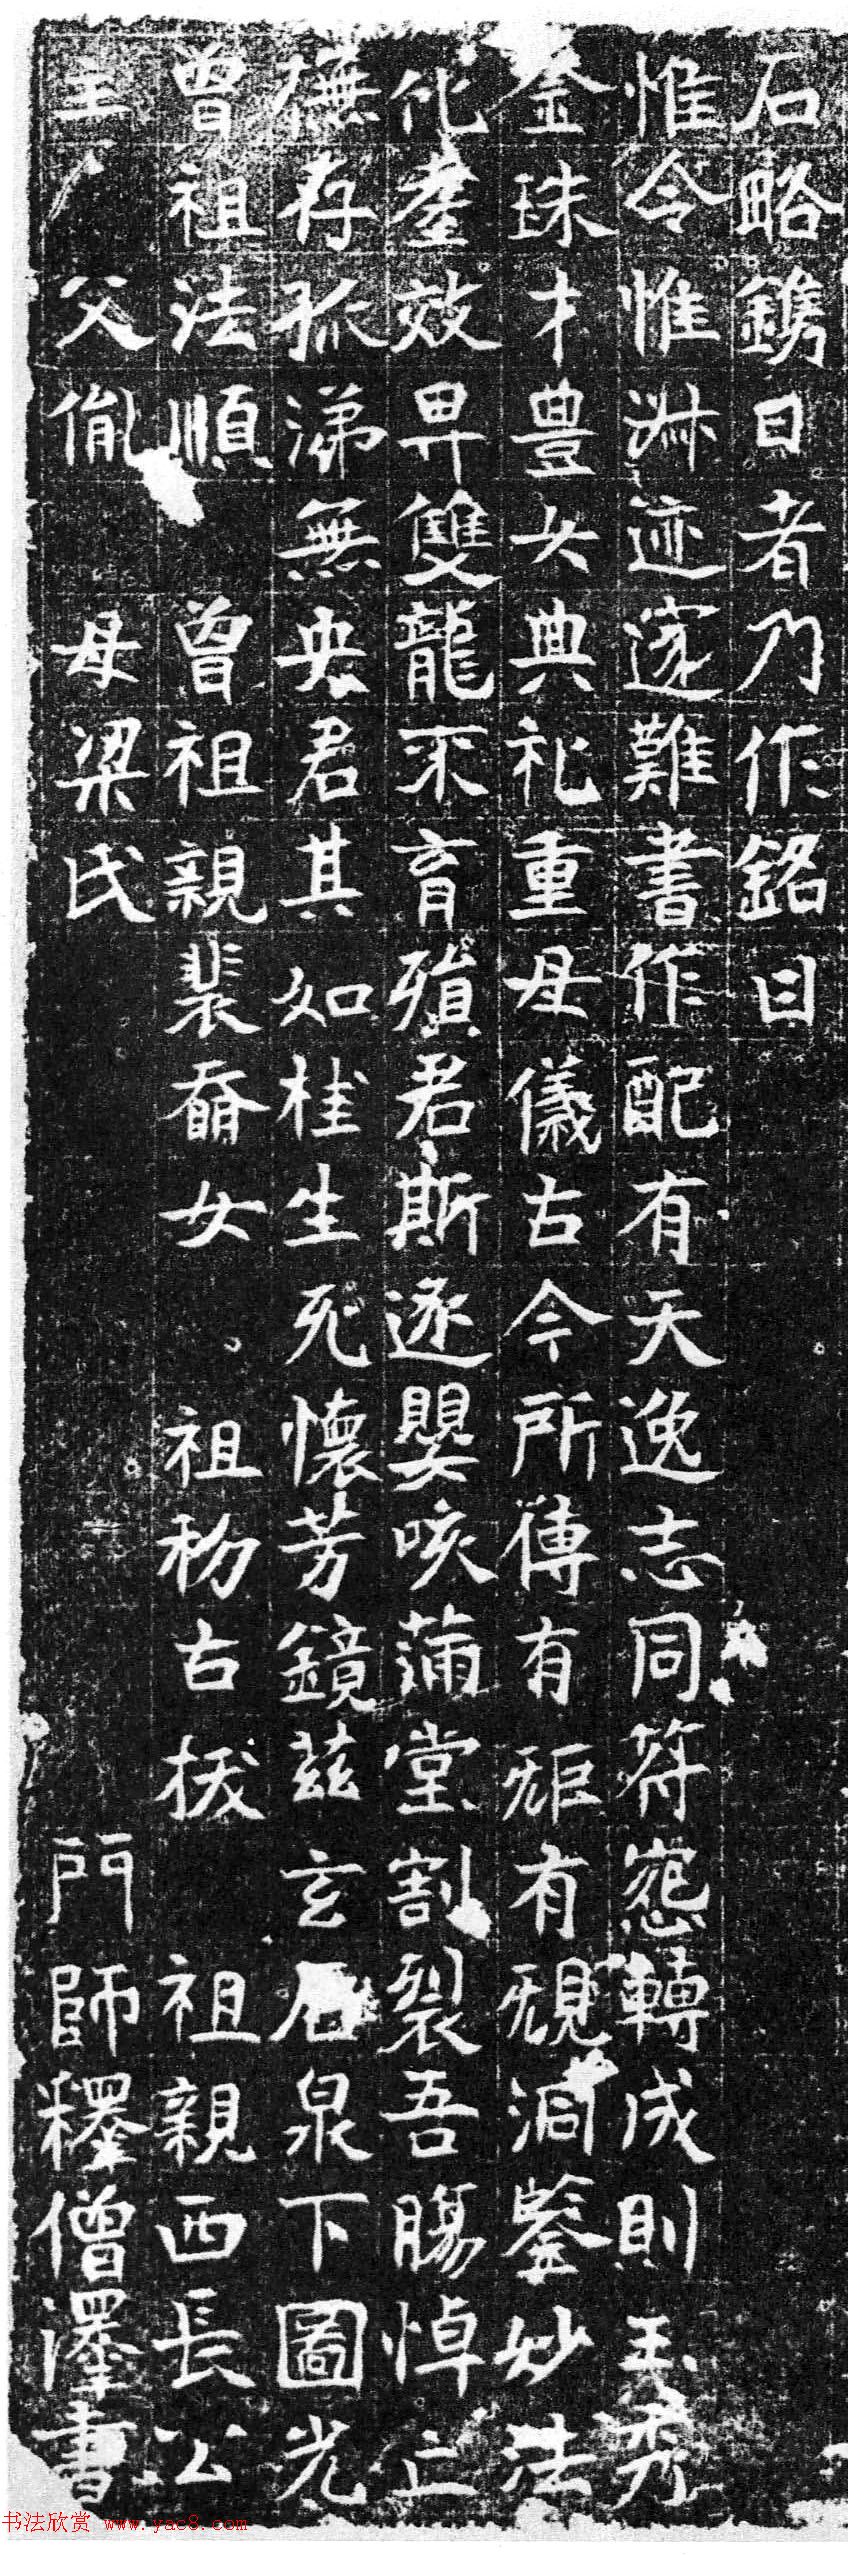 石略鐫日者乃作銘曰
惟令惟淑迹邃難書作配有天逸志同符轉成則玉秀
金珠才豊大典礼重母儀古今所傳有矩有覬洞鑒妙法
化臺效畀雙龍不育殞君斯逐嬰咳蒲堂割裂吾腸悼亡
撫存孤涕無央君其如桂生死懷芳鏡茲玄石泉下圖光
曾祖法順 曾祖親裴裔女 祖初古拔 祖親西長公
主 父胤 母梁氏 門師釋僧澤書
书法欣赏 www.yac8.com